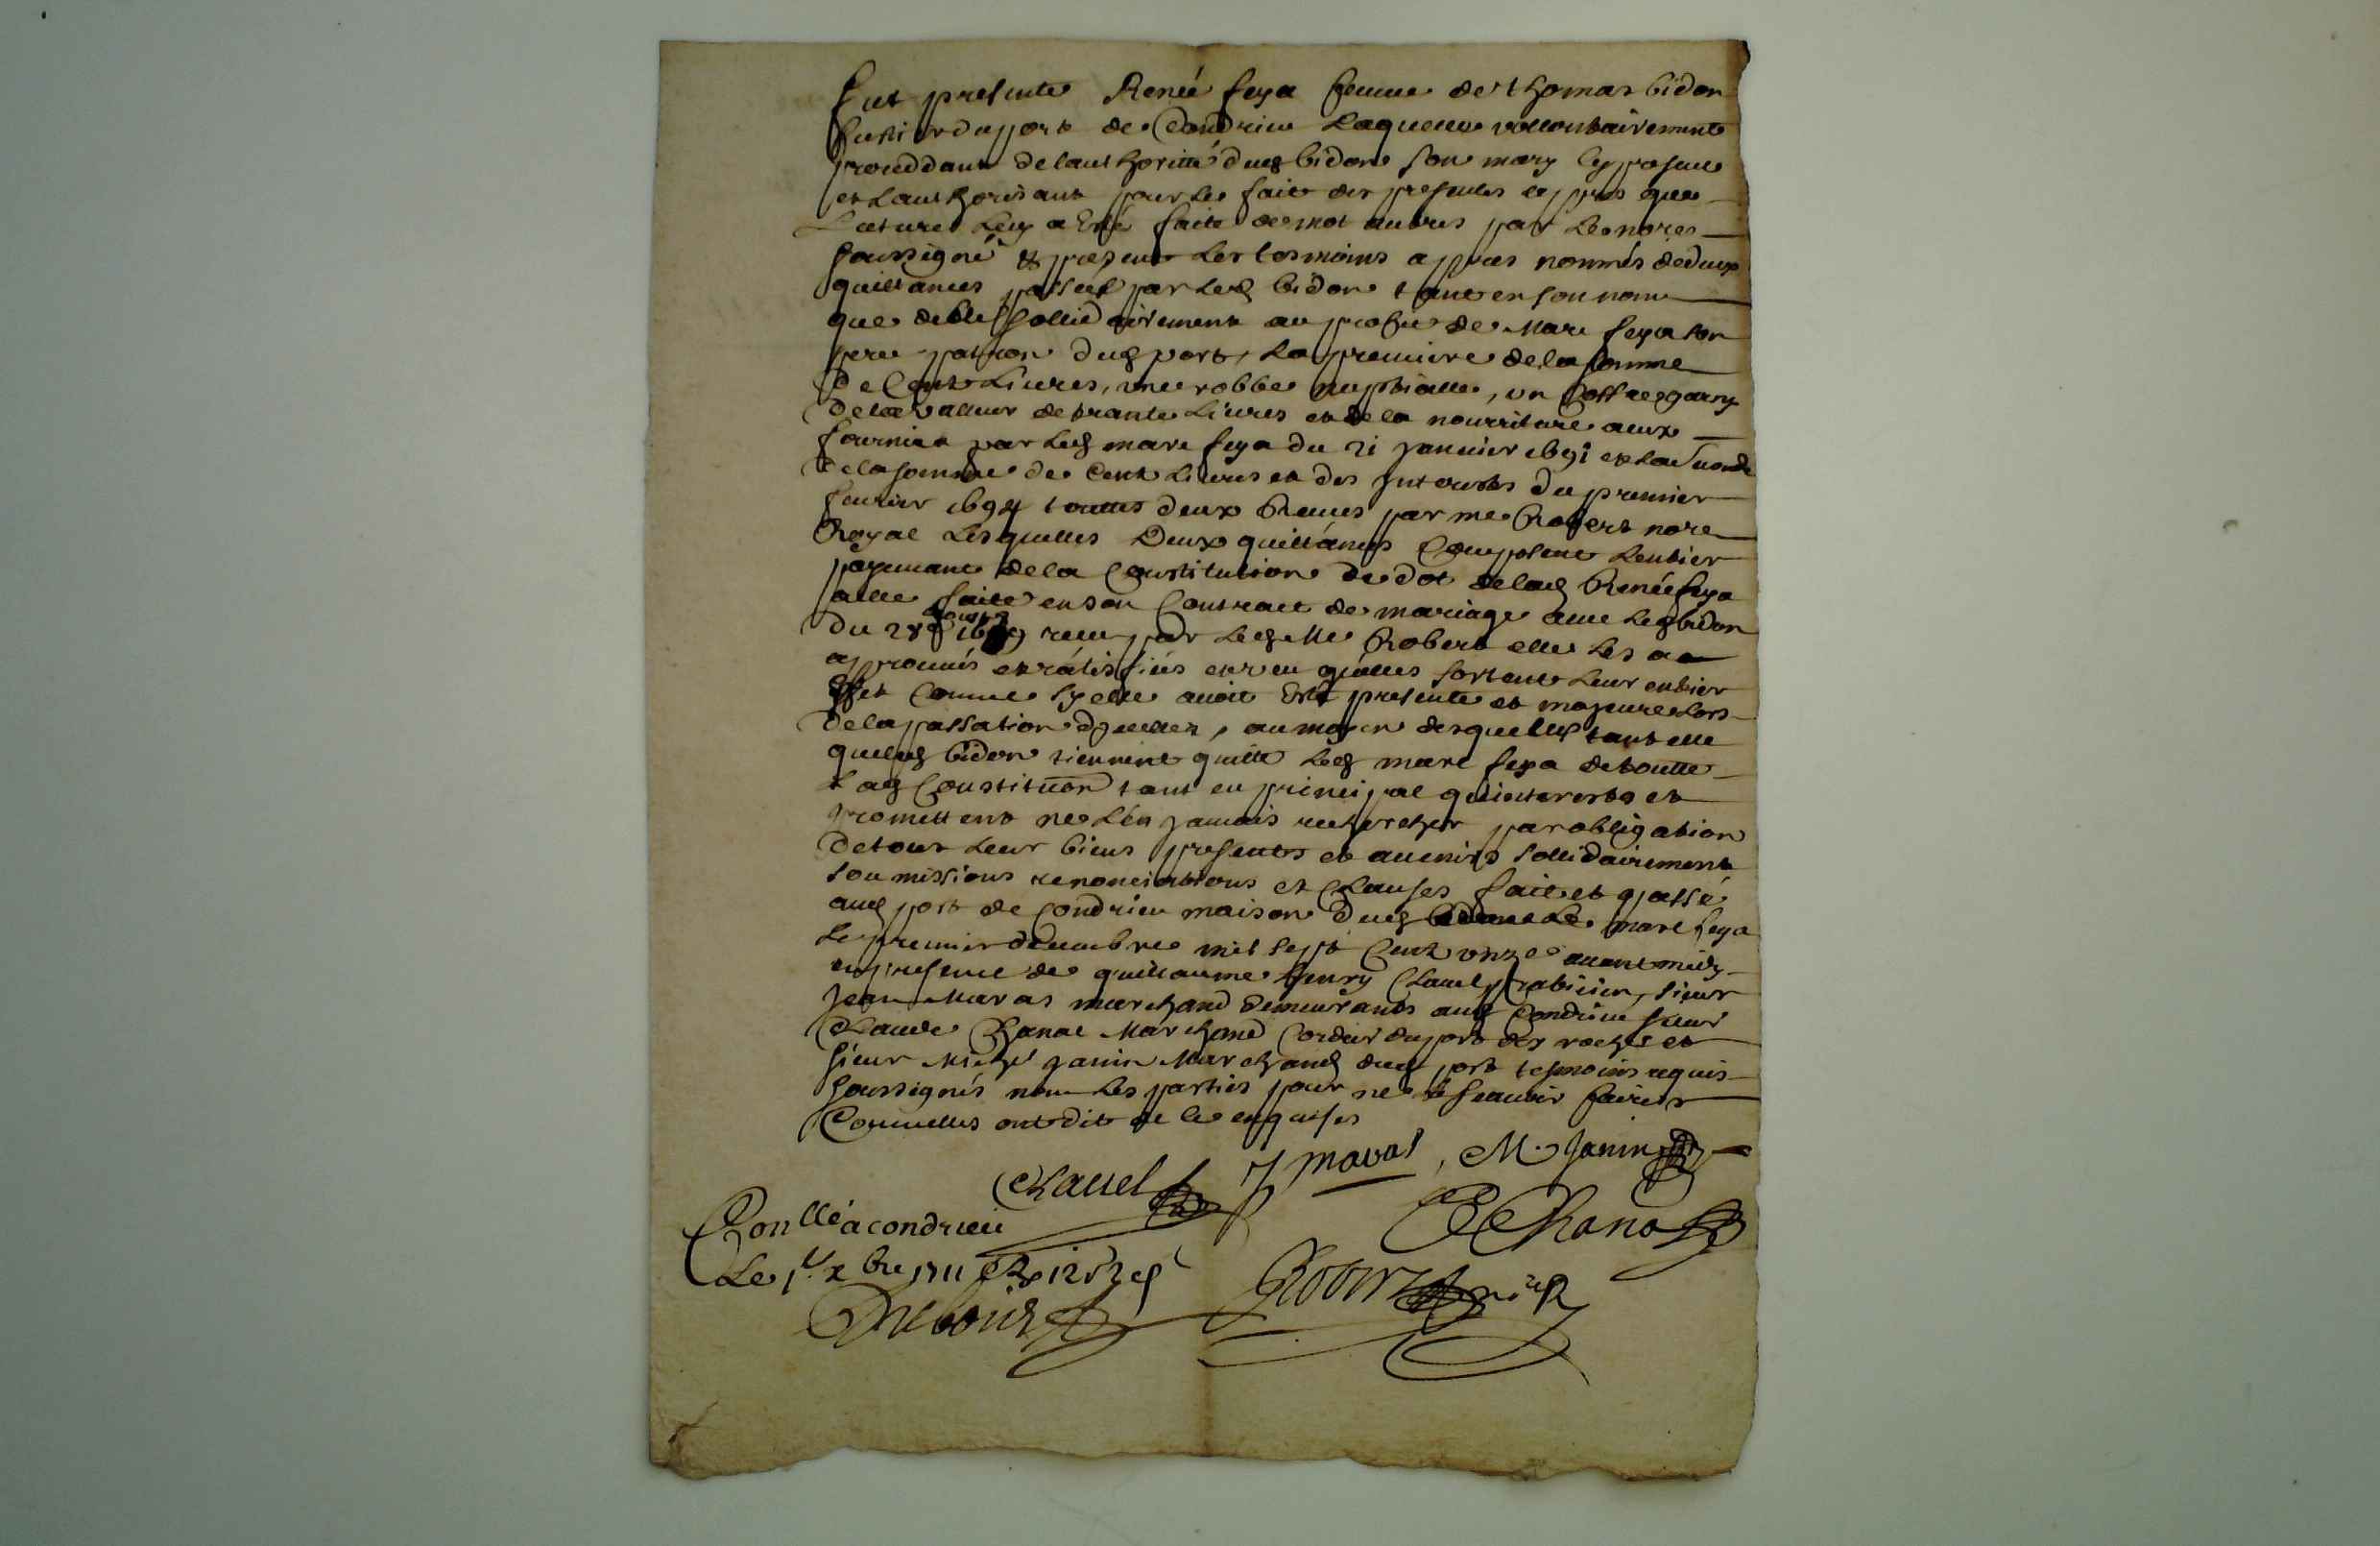 fut presente Renée feya femme de thomas bidon
fustier du port de Condrieu Laquelle vollontairement
proceddant de lauthoritté dud bidon son mary cy present
et Lauthorisant pour le fait des presentes apres que
Lecture Luy a Esté faite de mot au vres par le nore
soussigné & present les tesmoins apres nommés de deux
quittances passées par led bidon tant en son nom
que delle sollidairement au profit de Marc feya son
pere patron dud port, La premiere de la somme
de Cent Livres, une robbe nuptialle, un Coffre garny
de la valleur de trante Livres et de la nourriture aux
fournies par led marc feya du 21 janvier 1691 et la seconde
de la somme de Cent Livres et des jnterests du premier
feurier 1694 touttes deux Receues par me Robert nore
Royal Lesquelles Deux quittances Complent Lentier
payement de la Constitution de dot de lad Renée feya
a elle faite en son Contract de mariage auec led bidon
du 28e aoust 1689 receu par led Me Robert elle les a
approuués et ratiffiés et veu quelles sortent leur entier
effet Comme sy elle auoit Esté presente et majeure lors
de la passation djcelles, au moyen desquelles tant elle
que led bidon tiennent quitte led marc feya de toutte
lad Constituon tant en principal quinterests et
promettent ne lén jamais rechercher par obligation
de tous leur biens presents et auenirs sollidairement
soumissions renonciations et Clauses fait et passé
aud port de Condrieu maison dud marc feya
le premier decembre mil sept Cent unze auant midy
en presence de guillaume henry Clauel praticien, sieur
Jean Maras marchand demeurants aud Condrieu sieur
Claude Chanal Marchand Cordier du port des roches et
sieur Michel janin Marchand dud port tesmoins requis
soussignés non les parties pour ne le scauoir faire
Comme elles ont dit de ce enquises
Clauel J maras, M. Janin
C Chanal
Conllé a condrieu
Le 1er xbre 1711 R 12s
Robert nore R